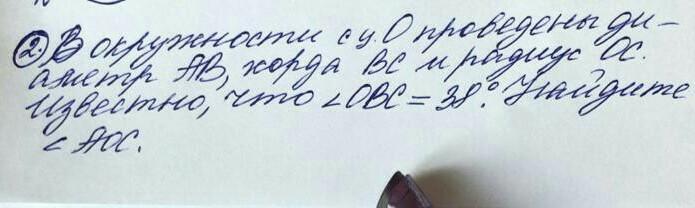 2. В окружности с ц. О проведены ди-
аметр АВ, хорда ВС и радиус ОС.
Известно, что ∠OBC = 38°. Найдите
∠ AOC.